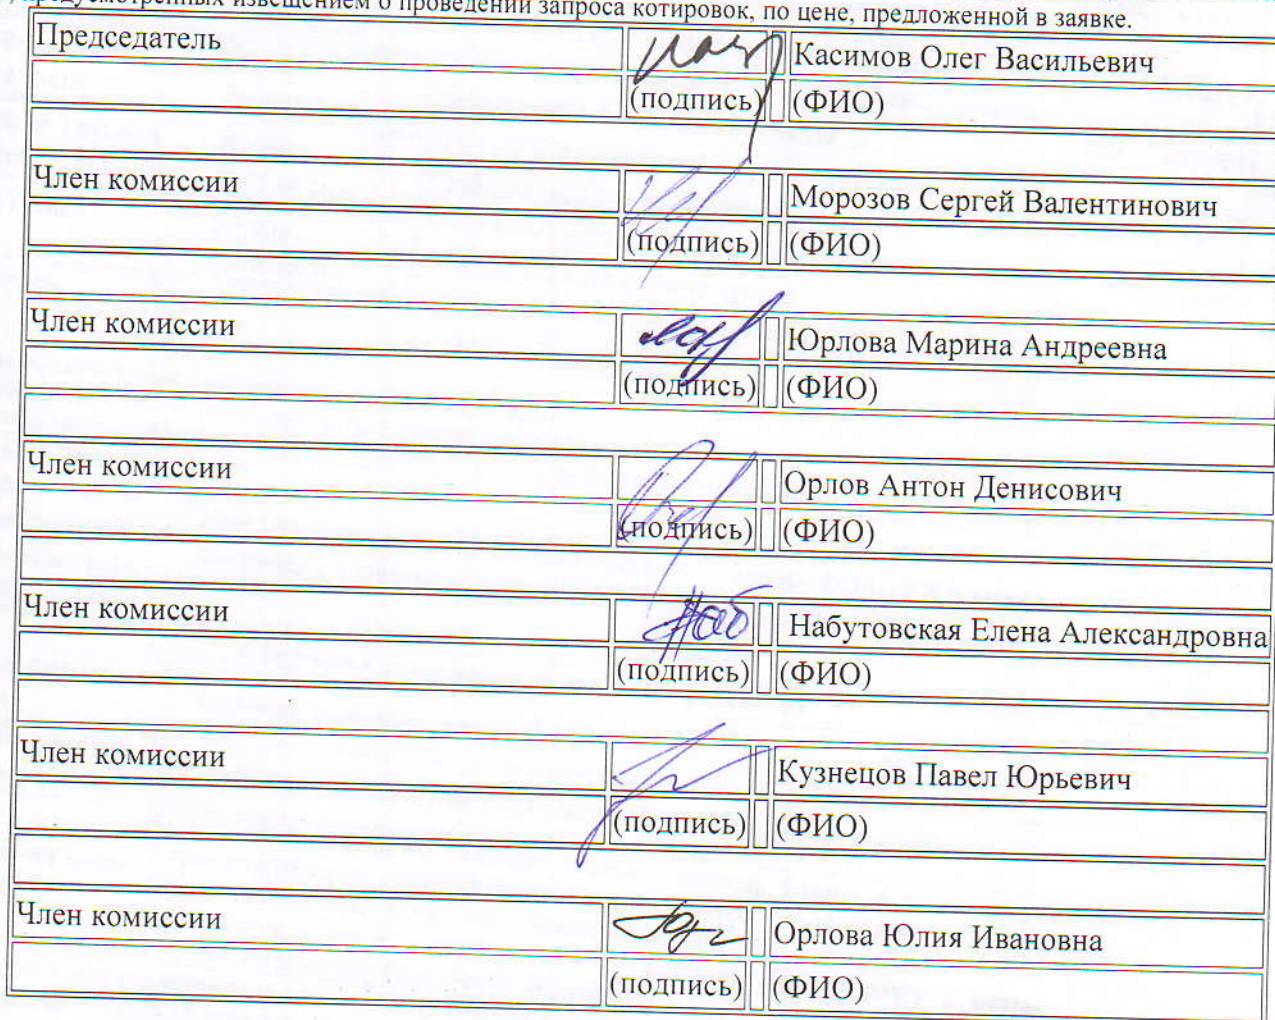 предусмотренных извещением о проведении запроса котировок, по цене, предложенной в заявке.
Председатель Касимов Олег Васильевич
(подпись) (ФИО)
Член комиссии Морозов Сергей Валентинович
(подпись) (ФИО)
Член комиссии Юрлова Марина Андреевна
(подпись) (ФИО)
Член комиссии Орлов Антон Денисович
(подпись) (ФИО)
Член комиссии Набутовская Елена Александровна
(подпись) (ФИО)
Член комиссии Кузнецов Павел Юрьевич
(подпись) (ФИО)
Член комиссии Орлова Юлия Ивановна
(подпись) (ФИО)